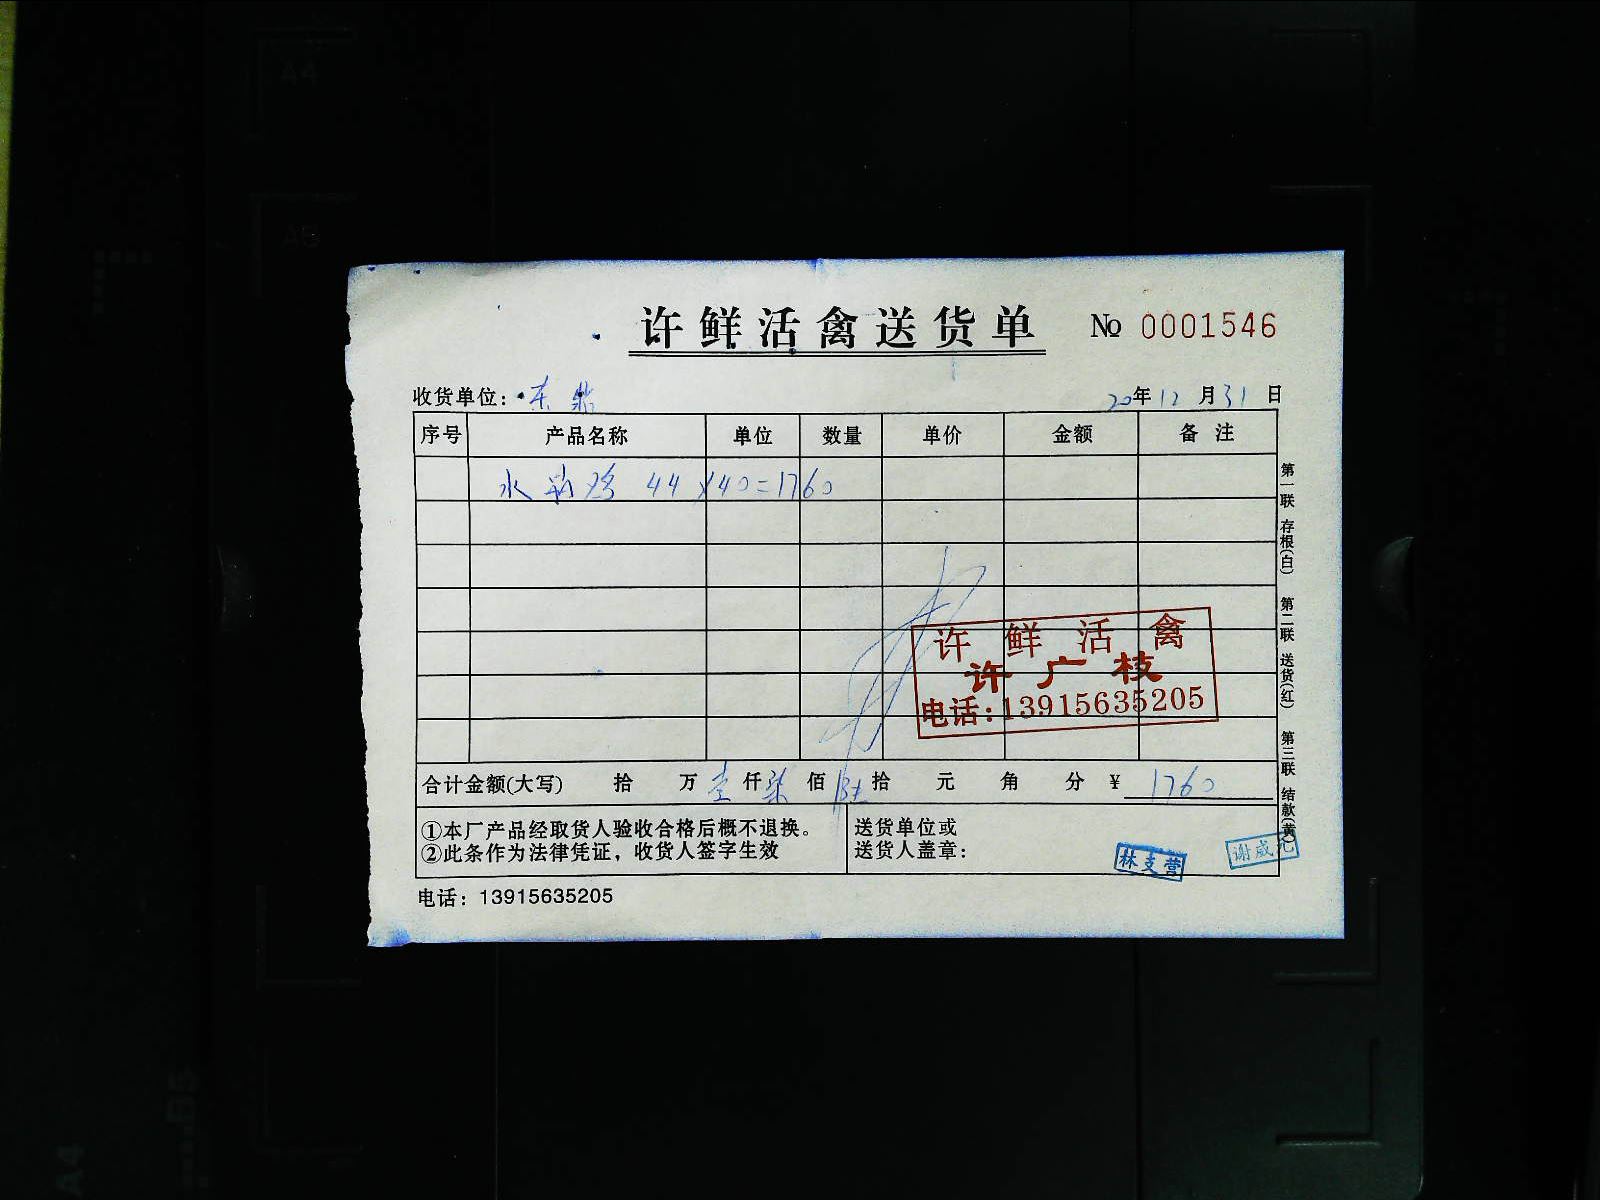 许鲜活禽送货单 № 0001546
收货单位: 东鼎 20年12月31日
序号 产品名称 单位 数量 单价 金额 备注
水 鸡 44×40=1760
许鲜活禽
许广枝
电话:13915635205
合计金额(大写) 拾 万 壹 仟 柒 佰 陆 拾 元 角 分 ¥ 1760
①本厂产品经取货人验收合格后概不退换。
②此条作为法律凭证，收货人签字生效
送货单位或
送货人盖章:
林支营
谢咸元
电话: 13915635205
第一联 存根(白) 第二联 送货(红) 第三联 结款(黄)
A4
A5
B5
A4